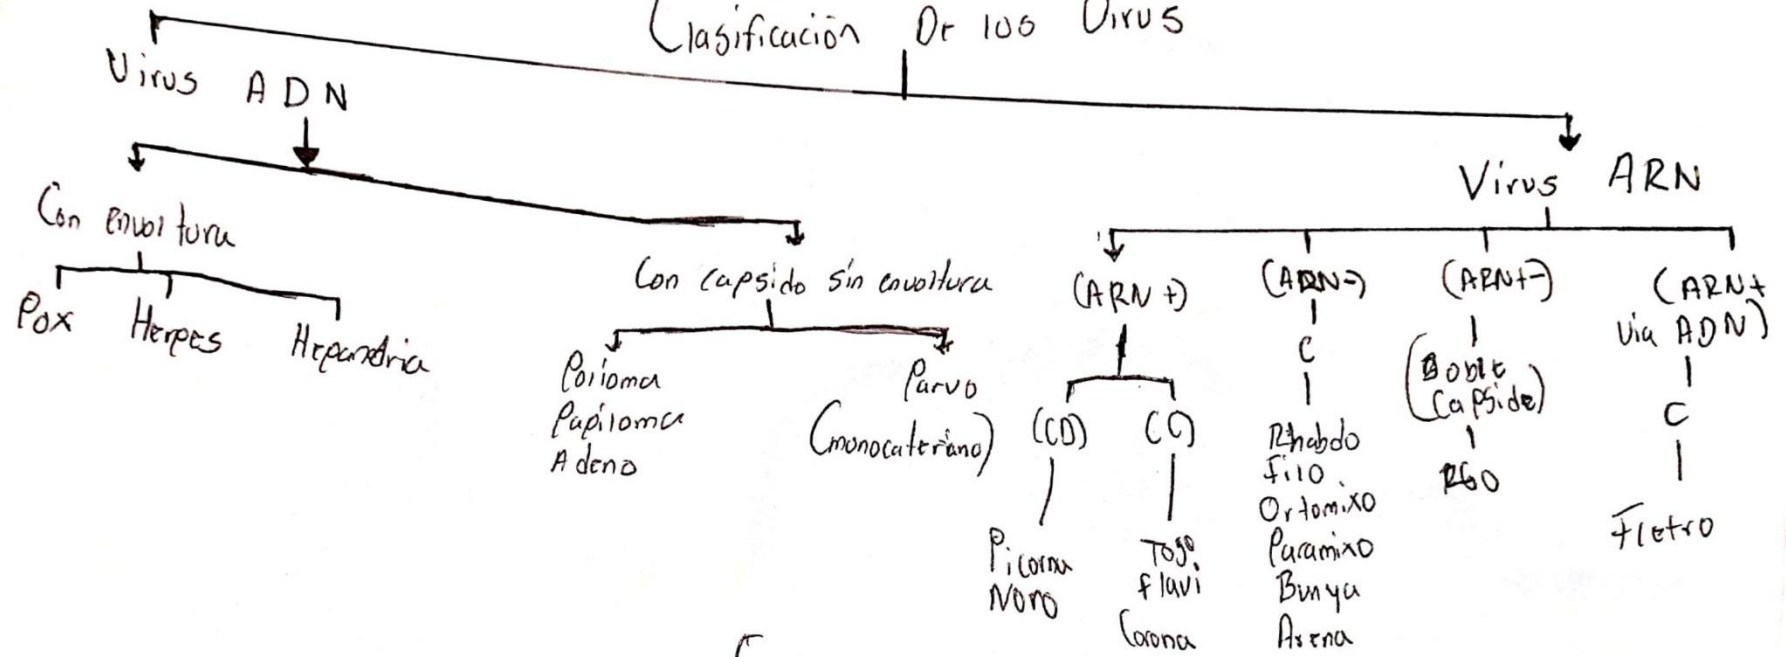 Clasificación De los Virus
Virus ADN
Virus ARN
Con envoltura
Pox
Herpes
Con capsido sin envoltura
Polioma
Papiloma
Adeno
Parvo
(monocateriano)
(ARN +)
(CD)
Picorna
Noro
(C)
Togo
flavi
Corona
(ARN-)
C
Rhabdo
filo
Ortomixo
Paramixo
Bunya
Arena
(ARN+-)
(Doble
Capside)
(ARN+
via ADN)
C